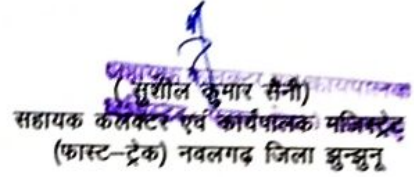 ( सुशील कुमार सैनी)
सहायक कलक्टर एवं कार्यपालक मजिस्ट्रेट
(फास्ट–ट्रेक) नवलगढ़ जिला झुन्झुनू